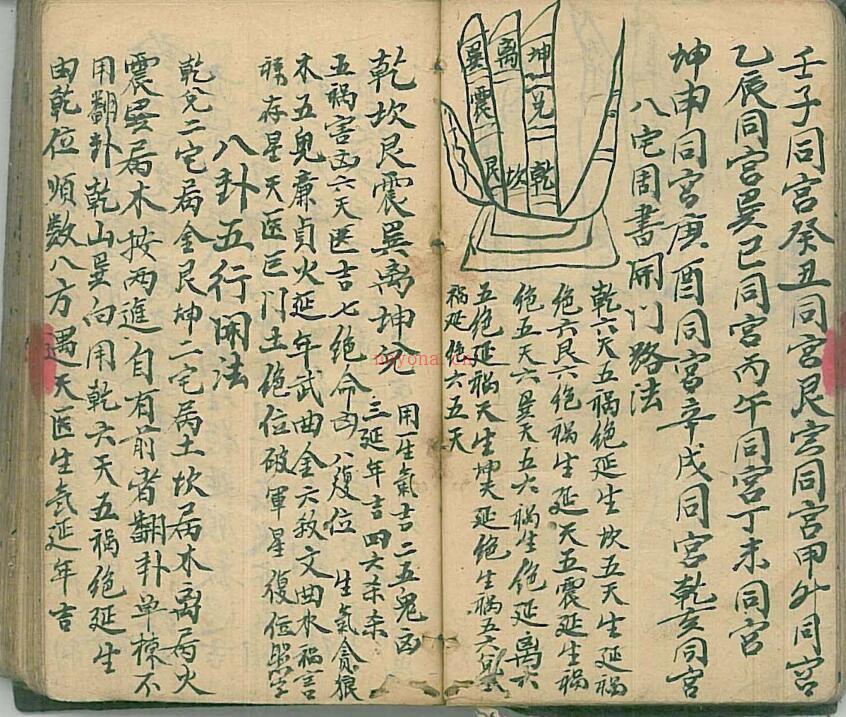 壬子同宫癸丑同宫艮寅同宫甲卯同宫
乙辰同宫巽巳同宫丙午同宫丁未同宫
坤申同宫庚酉同宫辛戌同宫乾亥同宫
八宅周書開门路法
坤兑乾
离坎
巽震艮
乾六天五禍绝延生 坎五天生延禍
绝六艮六绝禍生延天五震延生禍
绝五天六巽天五六禍生绝延离六
五绝延禍天生坤天延绝生禍五六兑生
禍延绝六五天
乾坎艮震巽离坤兑 用一生氣吉二五鬼凶
三延年吉四六杀杀
五禍害凶六天医吉七绝命凶八復位 生氣貪狼
木五鬼廉貞火延年武曲金六殺文曲水禍害
禄存星天医巨门土绝位破軍星復位
八卦五行開法
乾兑二宅属金艮坤二宅属土坎属木離属火
震巽属木按两進自有前者翻卦单棟不
用翻卦乾山巽向用乾六天五禍绝延生
由乾位順数八方遇天医生氣延年吉